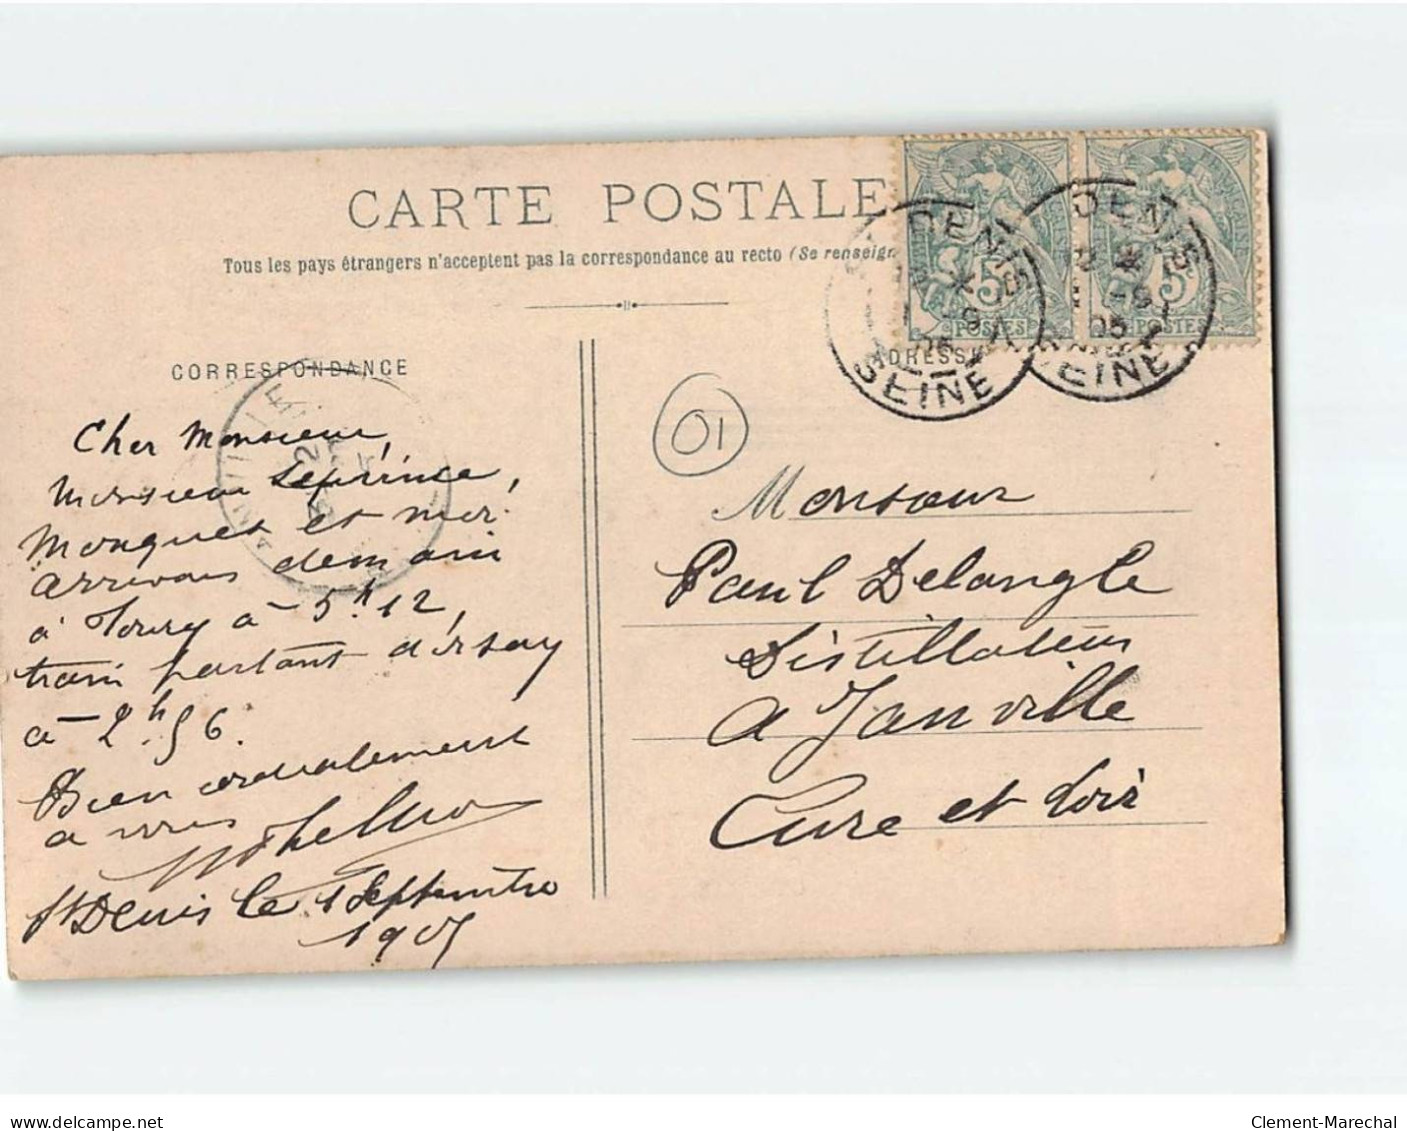 CARTE POSTALE
Tous les pays étrangers n'acceptent pas la correspondance au recto (Se renseign
CORRESPONDANCE
DRESS
DENIS
SEINE
05
5
POSTES
DENIS
SEINE
05
5
POSTES
01
Cher Monsieur,
Monsieur Leprince,
Mouquet et moi
arrivons demain
à Toury à 5h 12,
train partant d'orsay
à 2h 56.
Bien cordialement
a vous
St Denis le 1 Septembre
1905
Monsieur
Paul Delangle
Distillateur
a Janville
Eure et Loir
www.delcampe.net
Clement-Marechal